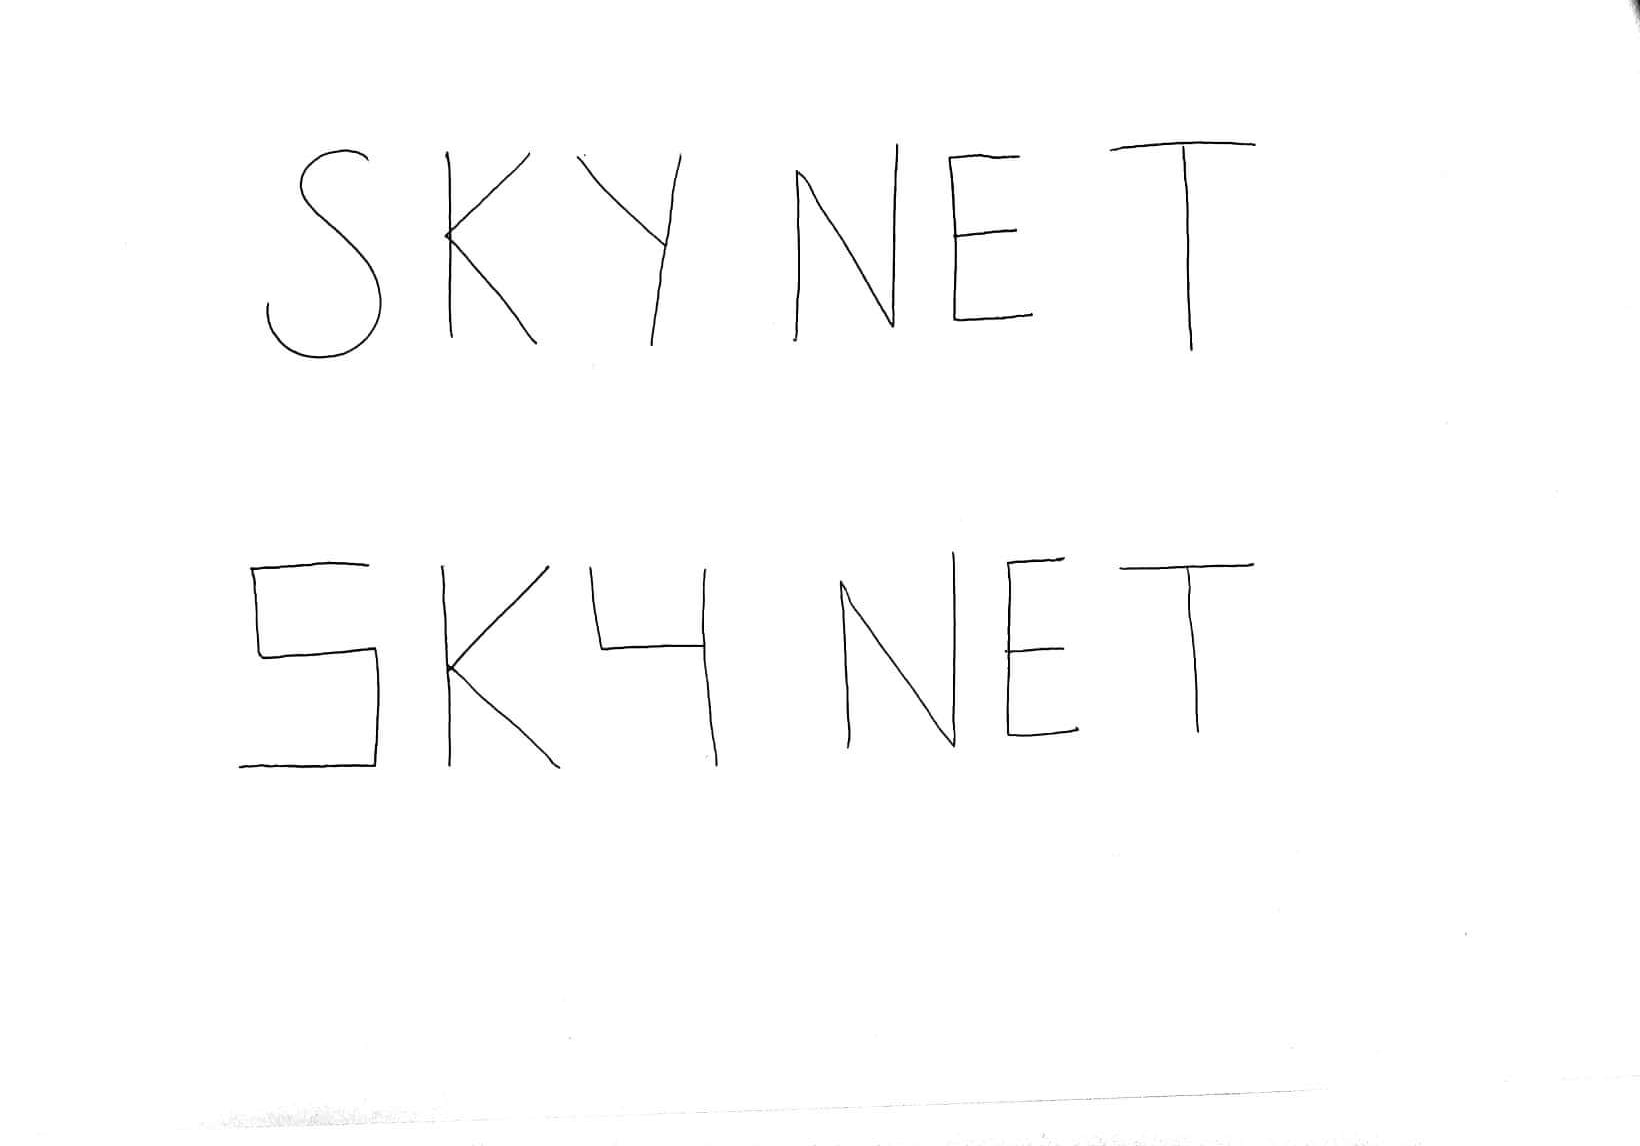 SKYNET
SKYNET